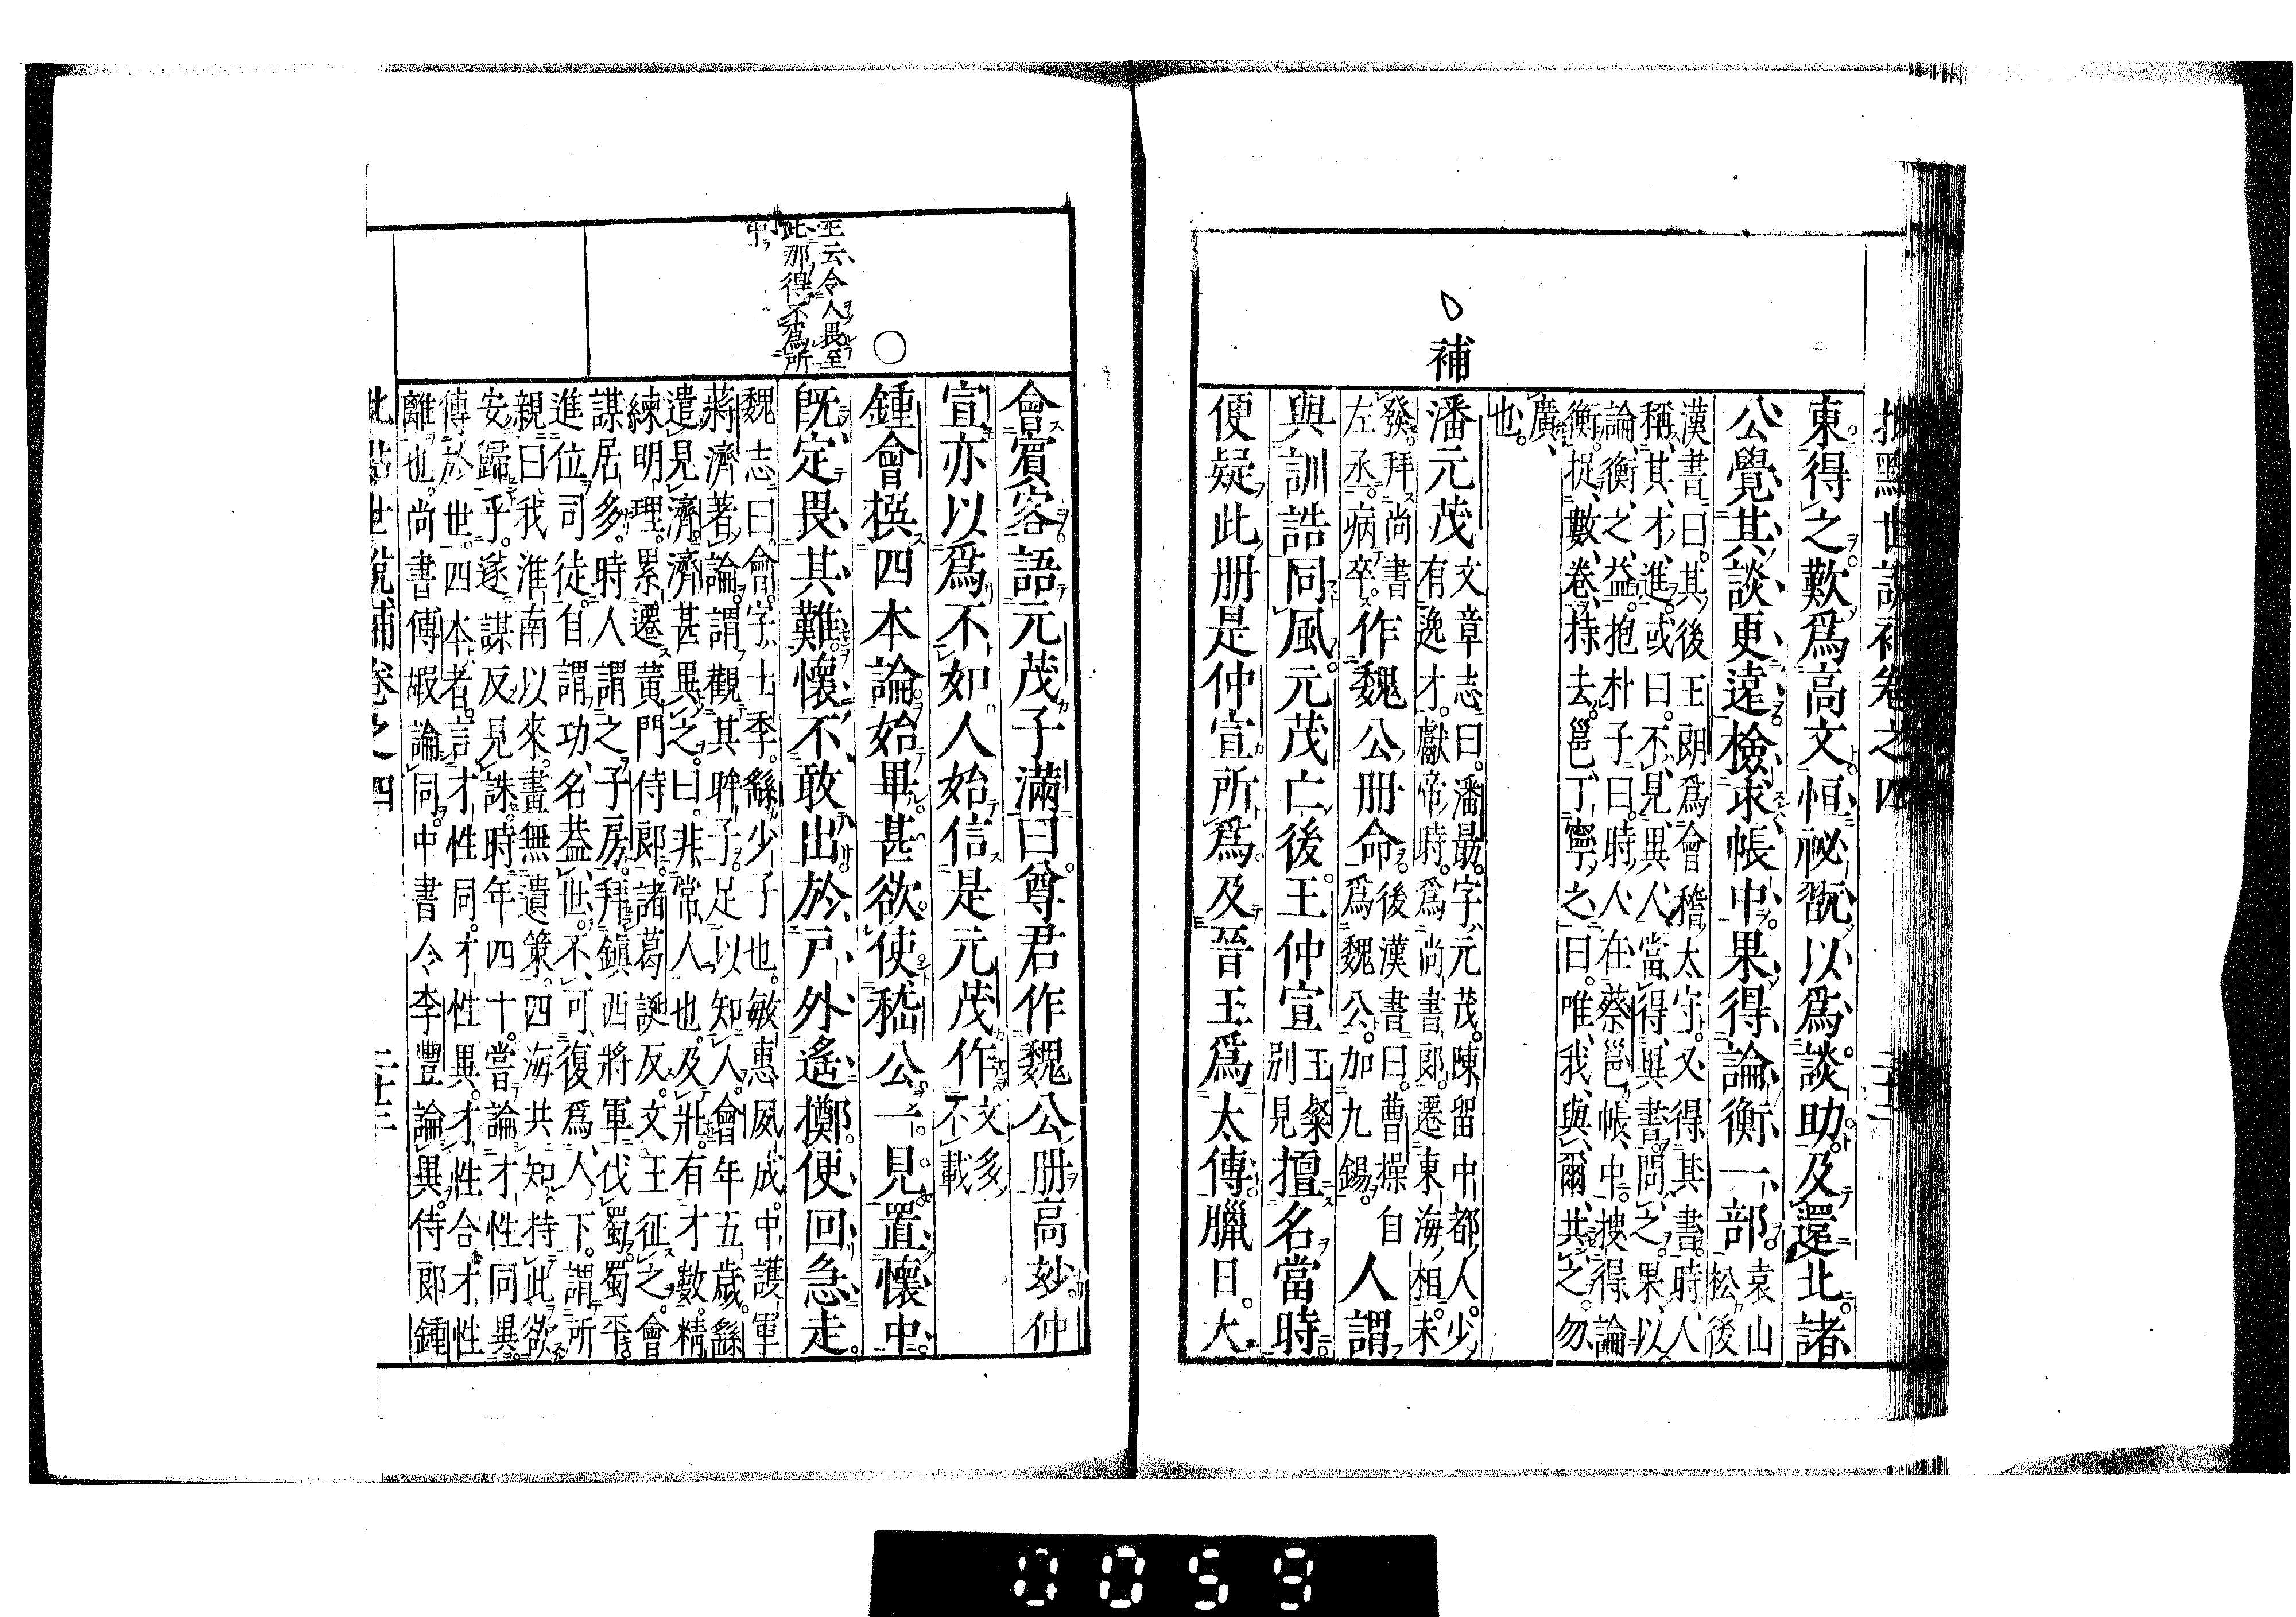 批點世說補卷之四
東得之歎爲高文恒祕翫以爲談助及還北諸
公覺其談更遠檢求帳中果得論衡一部
袁山
松後
漢書曰其後王朗爲會稽太守又得其書時人
稱其才進或曰不見異人當得異書問之果以
論衡之益抱朴子曰時人在蔡邕帳中搜得論
衡捉數卷持去邕丁寧之曰唯我與爾共之勿
廣
也
補
潘元茂
文章志曰潘最字元茂陳留中都人少
有逸才獻帝時爲尚書郎遷東海相未
發拜尚書
左丞病卒
作魏公册命
後漢書曰曹操自
爲魏公加九錫
人謂
與訓誥同風元茂亡後王仲宣
王粲
別見
擅名當時
便疑此册是仲宣所爲及晉王爲太傅臘日大
會賓客語元茂子滿曰尊君作魏公册高妙仲
宣亦以爲不如人始信是元茂作
文多
不載
至云令人畏至
此那得不爲所
鍾會撰四本論始畢甚欲使嵇公一見置懷中
既定畏其難懷不敢出於戶外遙擲便回急走
魏志曰會字士季繇少子也敏惠夙成中護軍
蔣濟著論謂觀其眸子足以知人會年五歲繇
遣見濟濟甚異之曰非常人也及壯有才數精
練明理累遷黃門侍郎諸葛誕反文王征之會
謀居多時人謂之子房拜鎮西將軍伐蜀蜀平
進位司徒自謂功名蓋世不可復爲人下謂所
親曰我淮南以來畫無遺策四海共知持此欲
安歸乎遂謀反見誅時年四十嘗論才性同異
傳於世四本者言才性同才性異才性合才性
離也尚書傅嘏論同中書令李豐論異侍郎鍾
批點世說補卷之四
0059